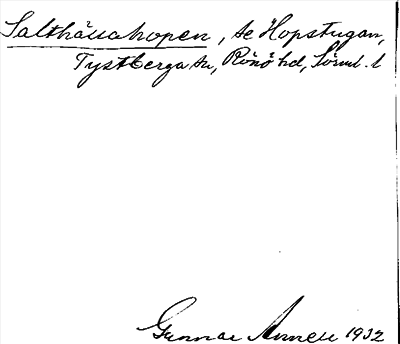 Salthässahopen, se Hopstugan,
Tystberga sn, Rönö hd, Sörml. l
Gunnar 1932